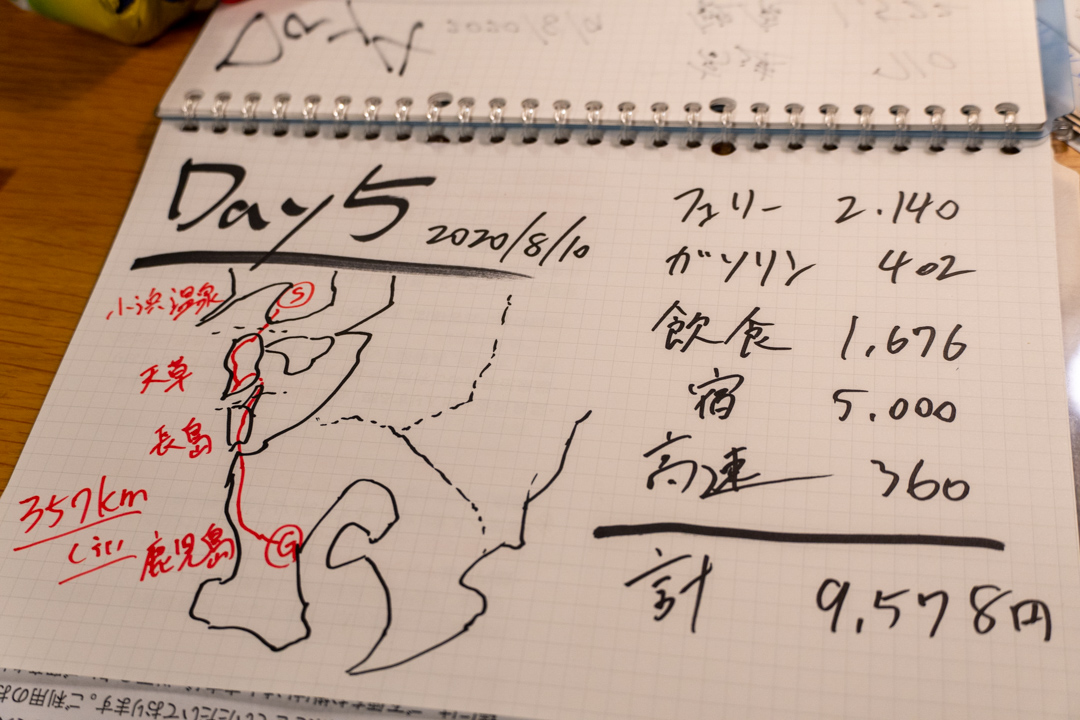 Day 5 2020/8/10
小浜温泉
S
天草
長島
357km
くらい
鹿児島
G
フェリー 2.140
ガソリン 402
飲食 1,676
宿 5.000
高速 360
計 9,578円